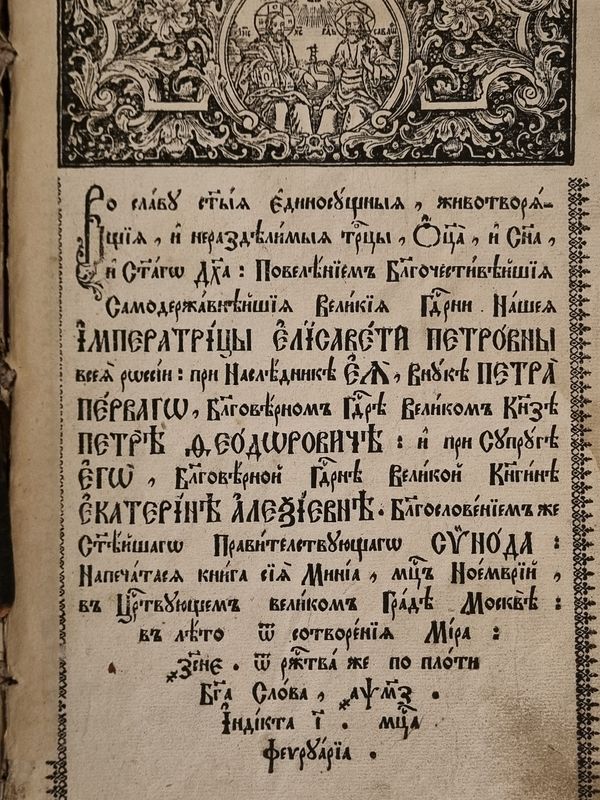 Во славу ст҃ы́ѧ є҆диносꙋ́щныѧ , животворѧ́-
щїѧ , и҆ нераздѣли́мыѧ трⷪ҇цы , Ѻ҆ц҃а̀ , и҆ Сн҃а ,
и҆ Ст҃а́гѡ Дх҃а : Повелѣ́нїемъ Бл҃гочести́вѣйшїѧ
Самодержа́внѣйшїѧ Вели́кїѧ Гдⷭ҇рни На́шеѧ
І҆МПЕРАТРІ́ЦЫ Є҆ЛІСАВЕ́ТИ ПЕТРО́ВНЫ
всеѧ̀ рѡссі́и : при Наслѣ́дникѣ Є҆Ѧ̀ , Внꙋ́кѣ ПЕТРА̀
ПЕ́РВАГѠ , Бл҃говѣ́рномъ Гдⷭ҇рѣ Вели́комъ Кн҃зѣ
ПЕТРѢ̀ Ѳ҆ЕО́ДѠРОВИЧѢ : и҆ при Сꙋпрꙋ́гѣ
Є҆ГѠ̀ , Бл҃говѣ́рной Гдⷭ҇рнѣ Вели́кой Кн҃ги́нѣ
Є҆КАТЕРІ́НѢ А҆ЛЕѮІ́ЕВНѢ . Бл҃гослове́нїемъ же
Ст҃ѣ́йшагѡ Прави́телствꙋющагѡ СѴНО́ДА :
Напеча́тасѧ кни́га сїѧ̀ Мині́а , мцⷭ҇ъ Ное́мврїй ,
въ Црⷭ҇твꙋющемъ вели́комъ Гра́дѣ Москвѣ̀ :
въ лѣ́то ѿ сотворе́нїѧ Мі́ра :
҂зс҃не . ѿ рж҇тⷭва̀ же по пло́ти
Бг҃а Сло́ва , ҂аѱм҃з .
І҆ндї́кта і҃ . мцⷭ҇а
феврꙋа́рїа .